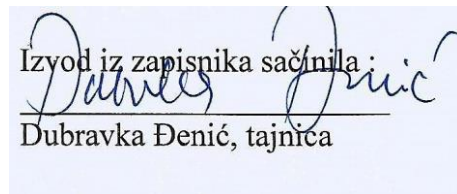 Izvod iz zapisnika sačinila :
Dubravka Đenić
Dubravka Đenić, tajnica